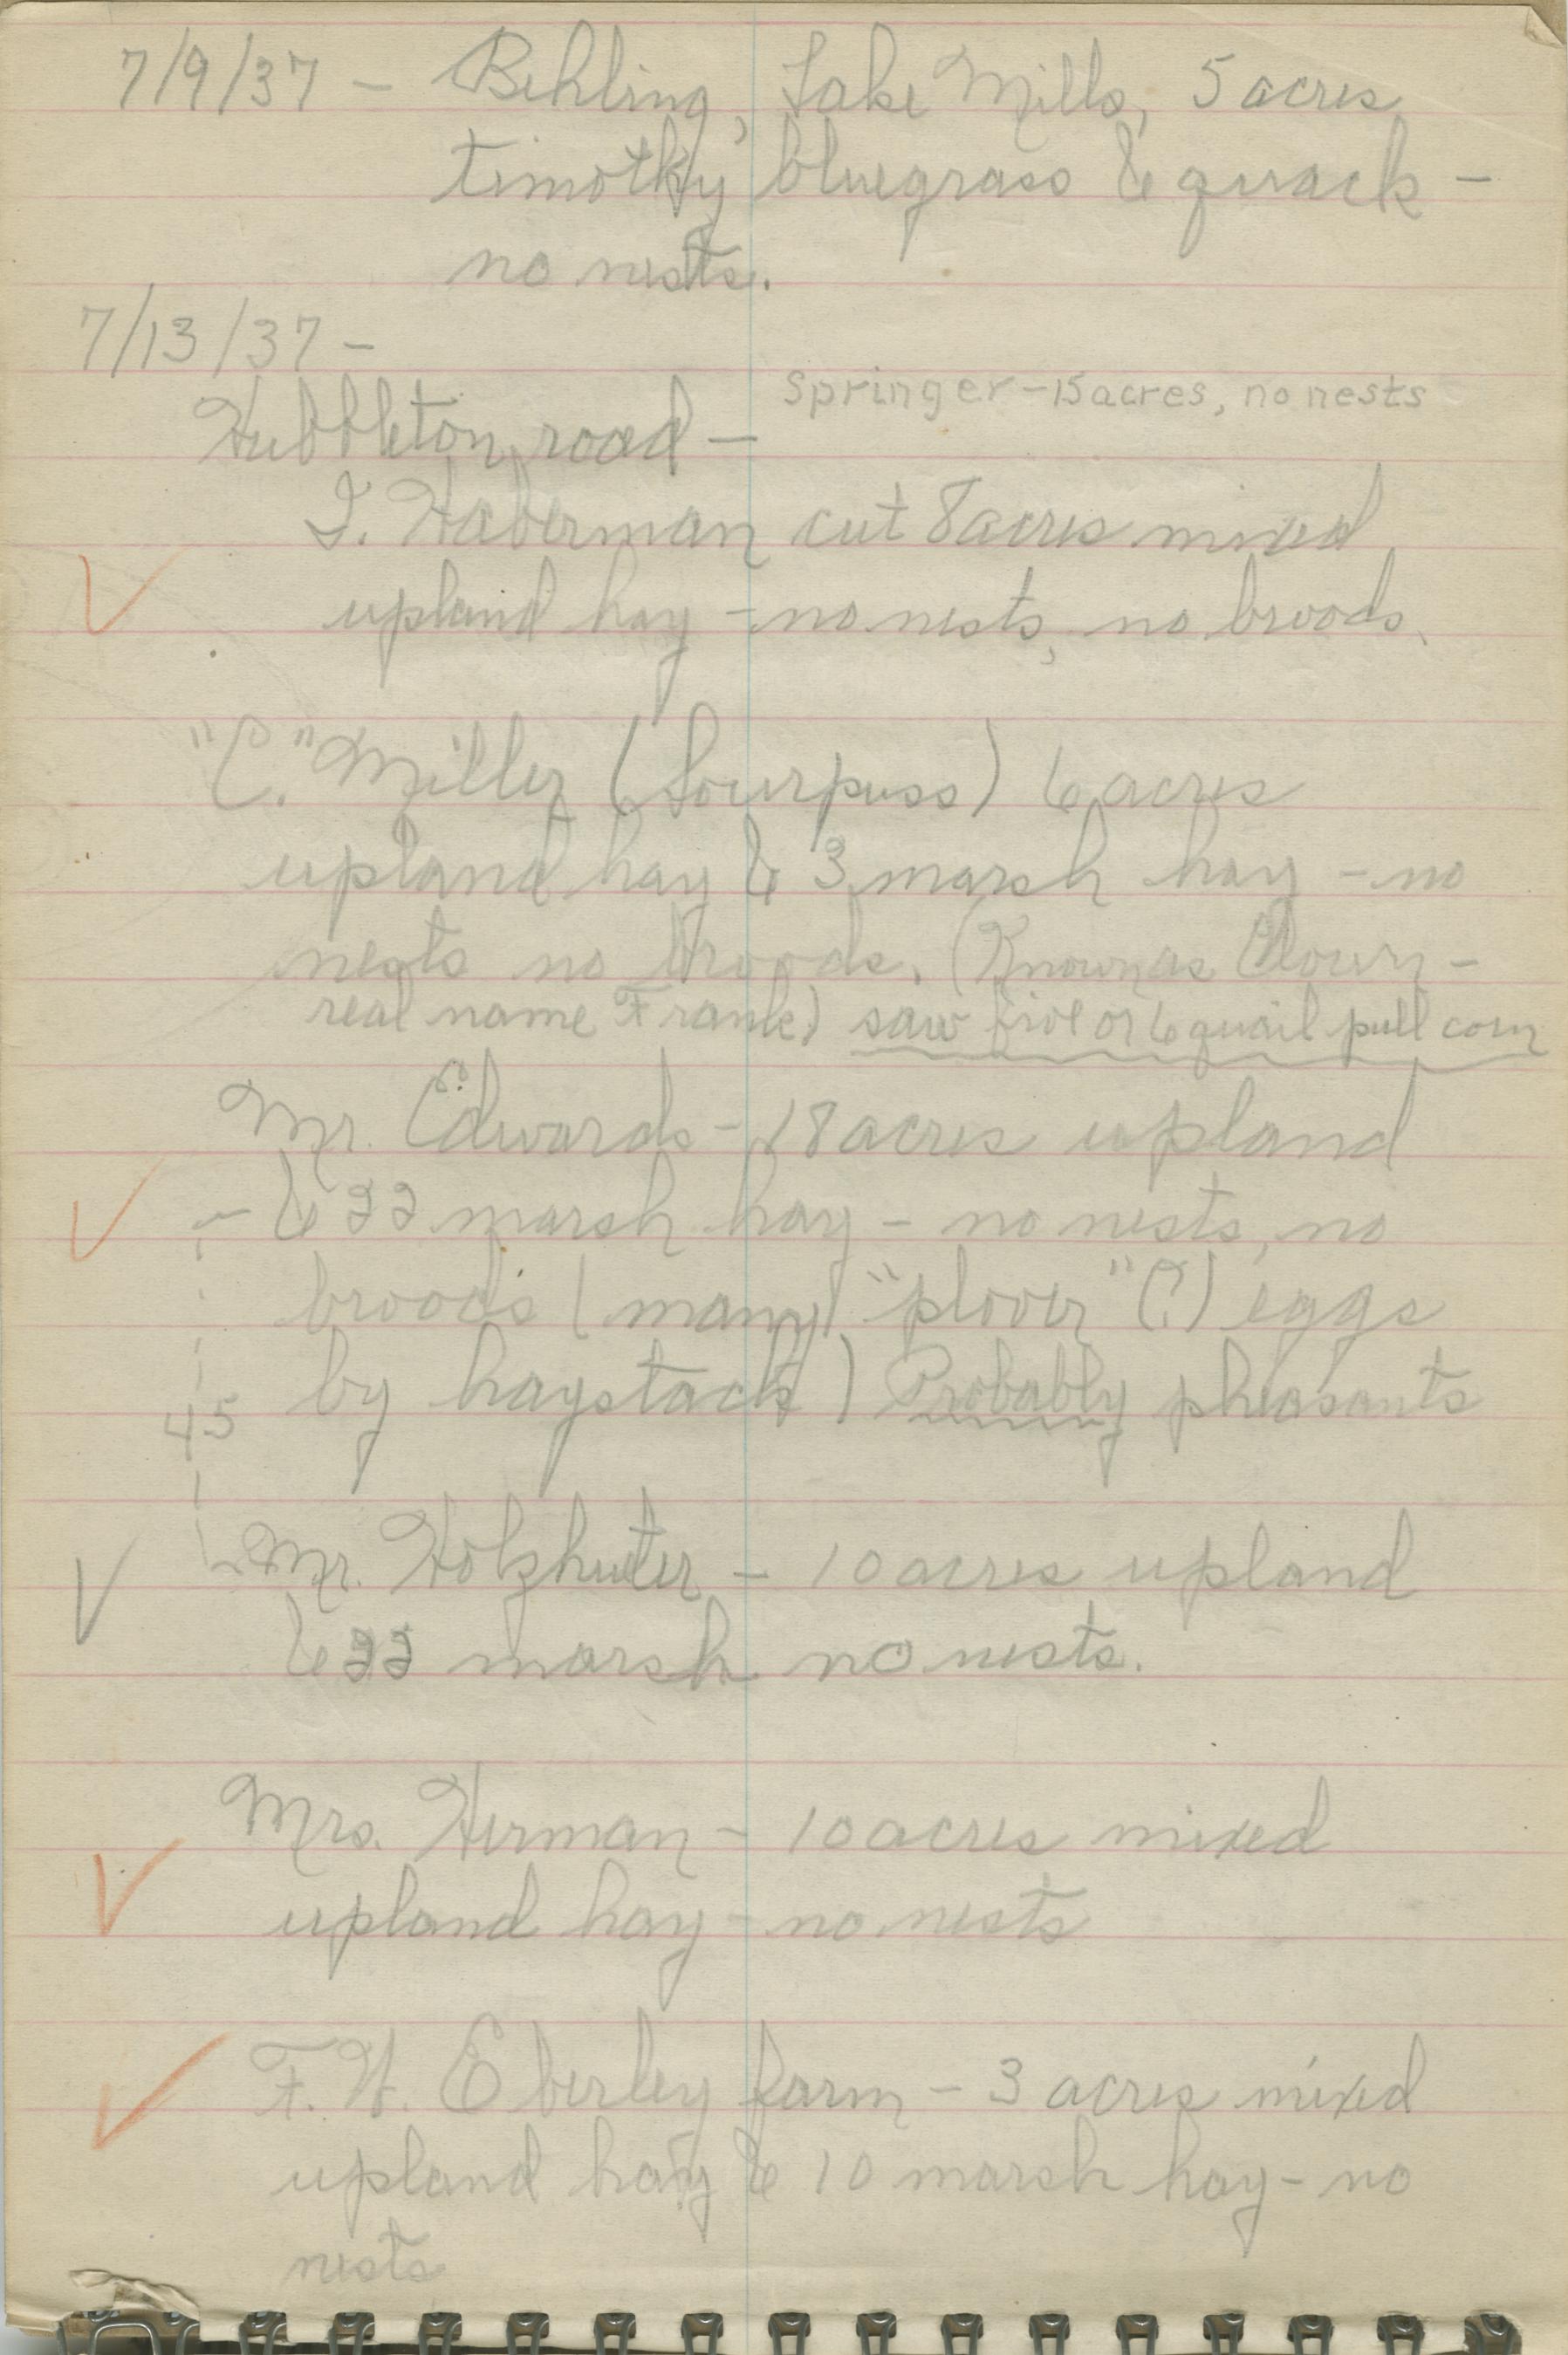 7/9/37 - Behling, Lake Mills, 5 acres
timothy bluegrass & quack -
no nests.
7/13/37 -
Springer - 15 acres, no nests
Hubbleton road -
I. Haberman cut 8 acres mixed
upland hay - no nests, no broods.
"C." Miller (Sourpuss) 6 acres
upland hay & 3 marsh hay - no
nests no broods. (Known as Clown -
real name Frank) saw five or 6 quail pull corn
Mr. Edwards - 18 acres upland
& 22 marsh hay - no nests, no
broods (many "plover" (?) eggs
by haystack) Probably pheasants
45
Mr. Holzhueter - 10 acres upland
& 22 marsh no nests.
Mrs. Herman - 10 acres mixed
upland hay - no nests
F. W. Eberley farm - 3 acres mixed
upland hay & 10 marsh hay - no
nests